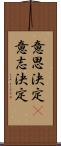 意思決定
意志決定